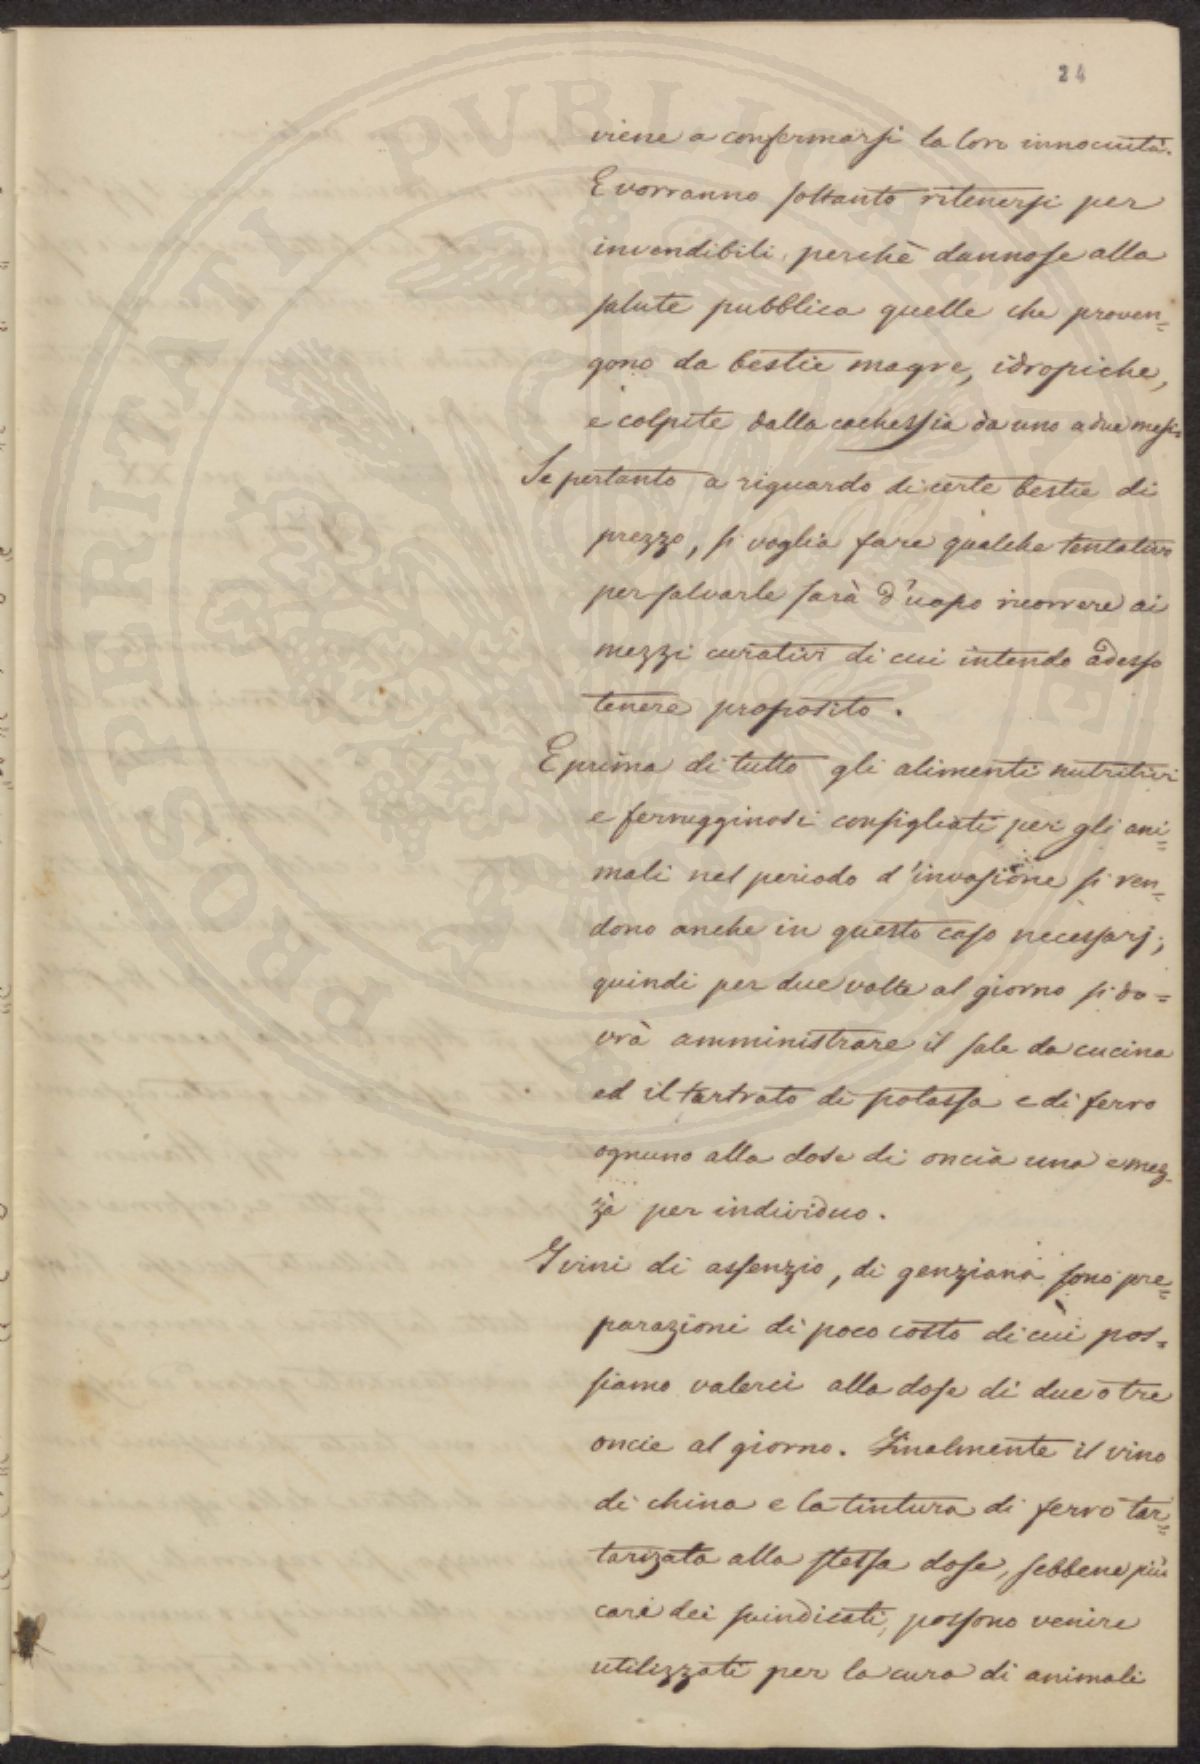 24
PROSPERITATI PUBLICAE AUGENDAE
viene a confermarsi la loro innocuità.
E vorranno soltanto ritenersi per
invendibili, perchè dannose alla
salute pubblica quelle che proven=
gono da bestie magre, idropiche,
e colpite dalla cachessia da uno a due mesi.
Se pertanto a riguardo di certe bestie di
prezzo, si voglia fare qualche tentativo
per salvarle sarà d'uopo ricorrere ai
mezzi curativi di cui intendo adesso
tenere proposito.
E prima di tutto gli alimenti nutritivi
e ferrugginosi consigliati per gli ani=
mali nel periodo d'invasione si ren=
dono anche in questo caso necessarj;
quindi per due volte al giorno si do=
vrà amministrare il sale da cucina
ed il tartrato di potassa e di ferro
ognuno alla dose di oncia una e mez=
za per individuo.
I vini di assenzio, di genziana sono pre=
parazioni di poco costo di cui pos=
siamo valerci alla dose di due o tre
oncie al giorno. Finalmente il vino
di china e la tintura di ferro tar=
tarizata alla stessa dose, sebbene più
cari dei suindicati, possono venire
utilizzati per la cura di animali